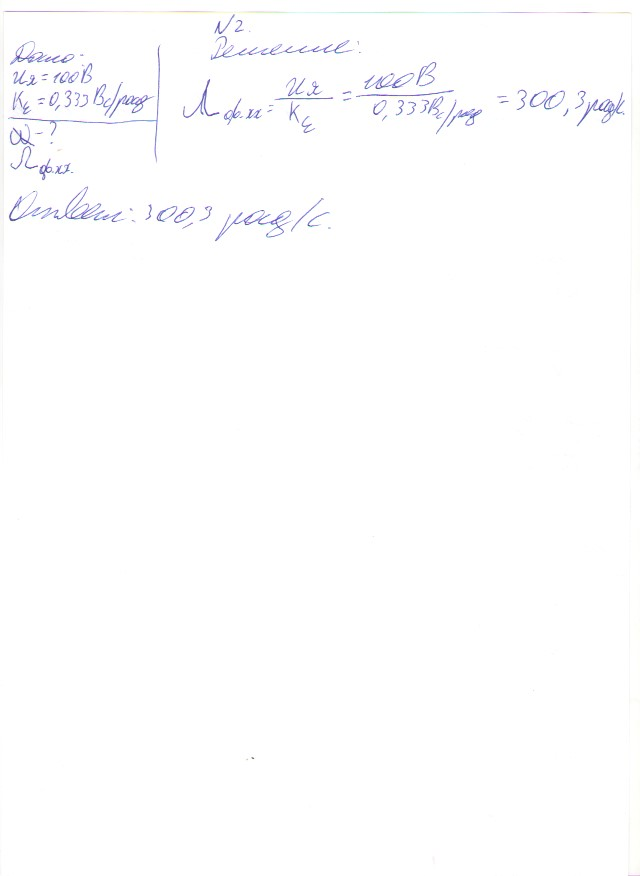 N2.
Решение:
Дано:
Uя = 100В
Kε = 0,333Вс/рад
- ?
Ωдв.хх.
Ωдв.хх = Uя / Kε = 100В / 0,333Вс/рад = 300,3 рад/с.
Ответ: 300,3 рад/с.